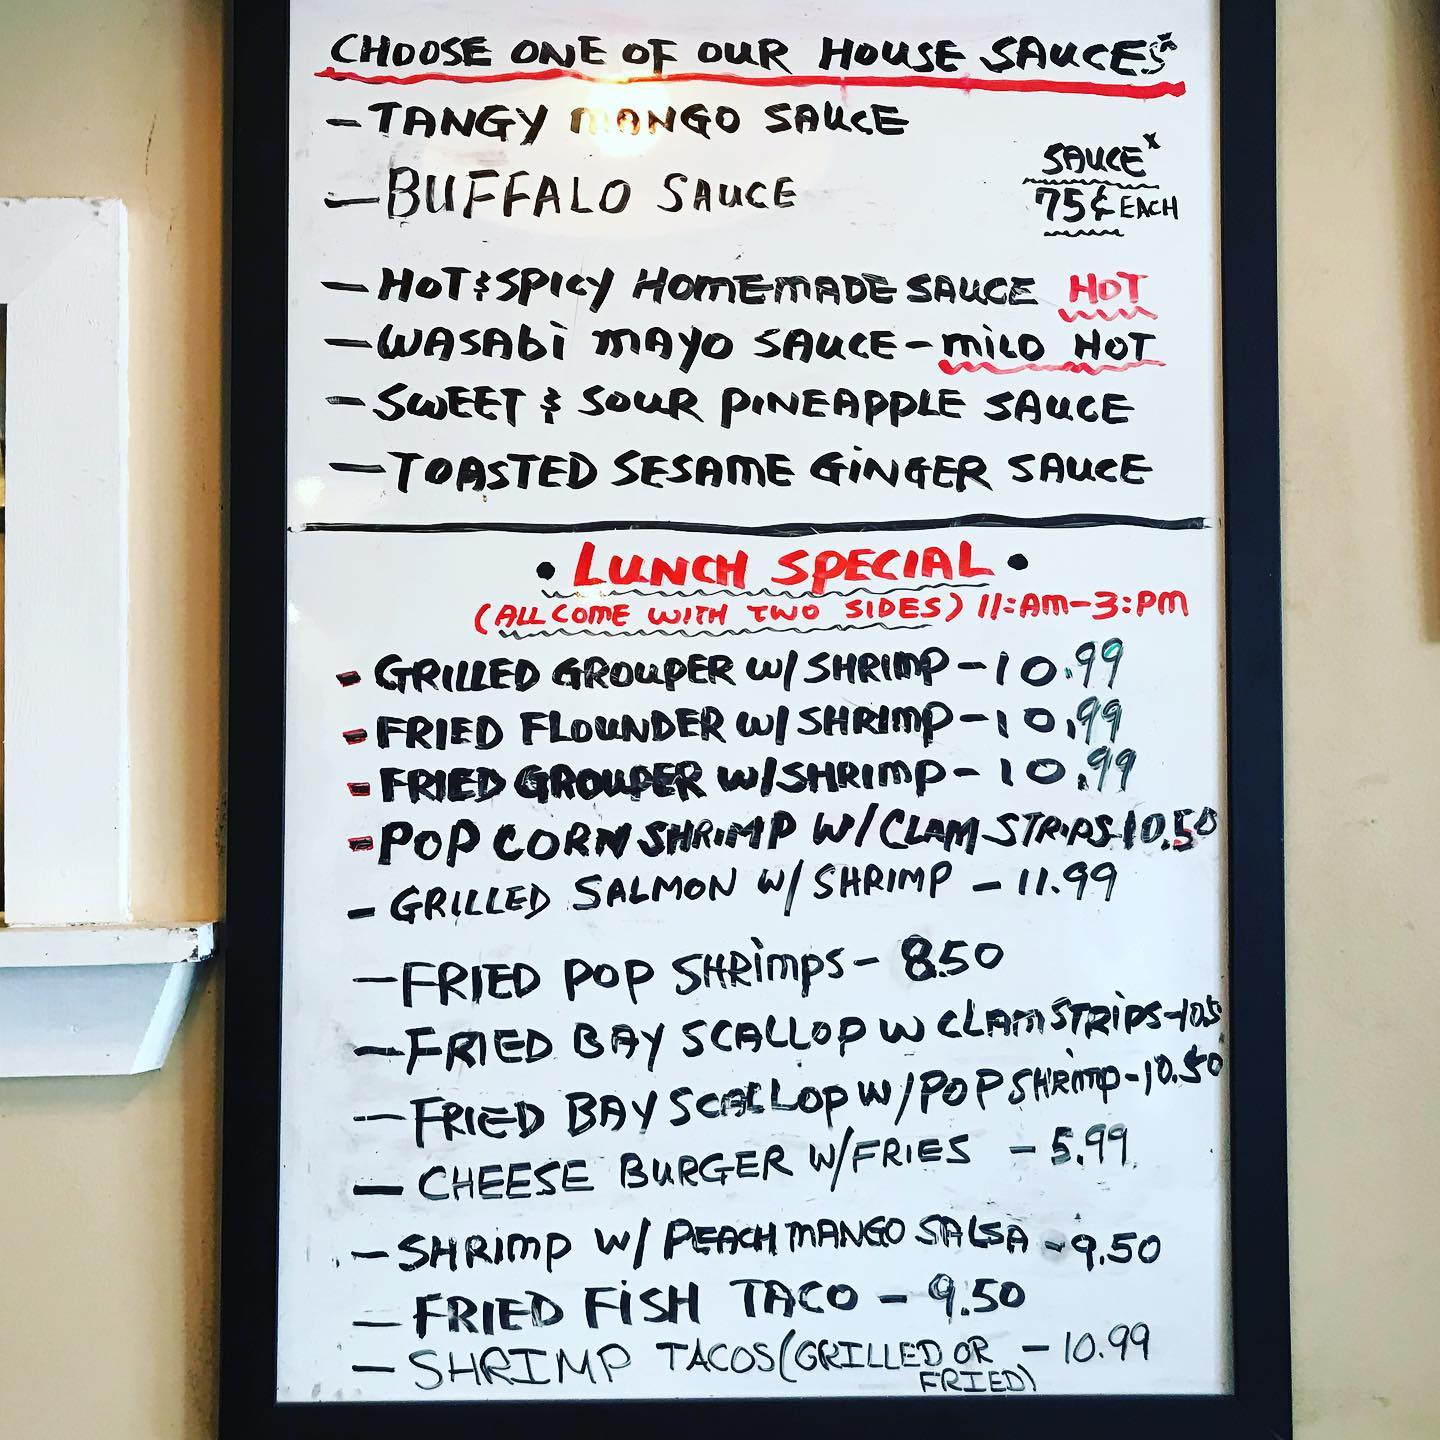 CHOOSE ONE OF OUR HOUSE SAUCES*
- TANGY MANGO SAUCE
- BUFFALO SAUCE
SAUCE*
75¢ EACH
- HOT & SPICY HOMEMADE SAUCE HOT
- WASABI MAYO SAUCE - MILD HOT
- SWEET & SOUR PINEAPPLE SAUCE
- TOASTED SESAME GINGER SAUCE
• LUNCH SPECIAL •
(ALL COME WITH TWO SIDES) 11:AM-3:PM
- GRILLED GROUPER W/ SHRIMP - 10.99
- FRIED FLOUNDER W/ SHRIMP - 10.99
- FRIED GROUPER W/ SHRIMP - 10.99
- POP CORN SHRIMP W/ CLAM STRIPS - 10.50
- GRILLED SALMON W/ SHRIMP - 11.99
- FRIED POP SHRIMPS - 8.50
- FRIED BAY SCALLOP W CLAM STRIPS - 10.5
- FRIED BAY SCALLOP W/ POP SHRIMP - 10.50
- CHEESE BURGER W/ FRIES - 5.99
- SHRIMP W/ PEACH MANGO SALSA - 9.50
- FRIED FISH TACO - 9.50
- SHRIMP TACOS (GRILLED OR - 10.99
FRIED)